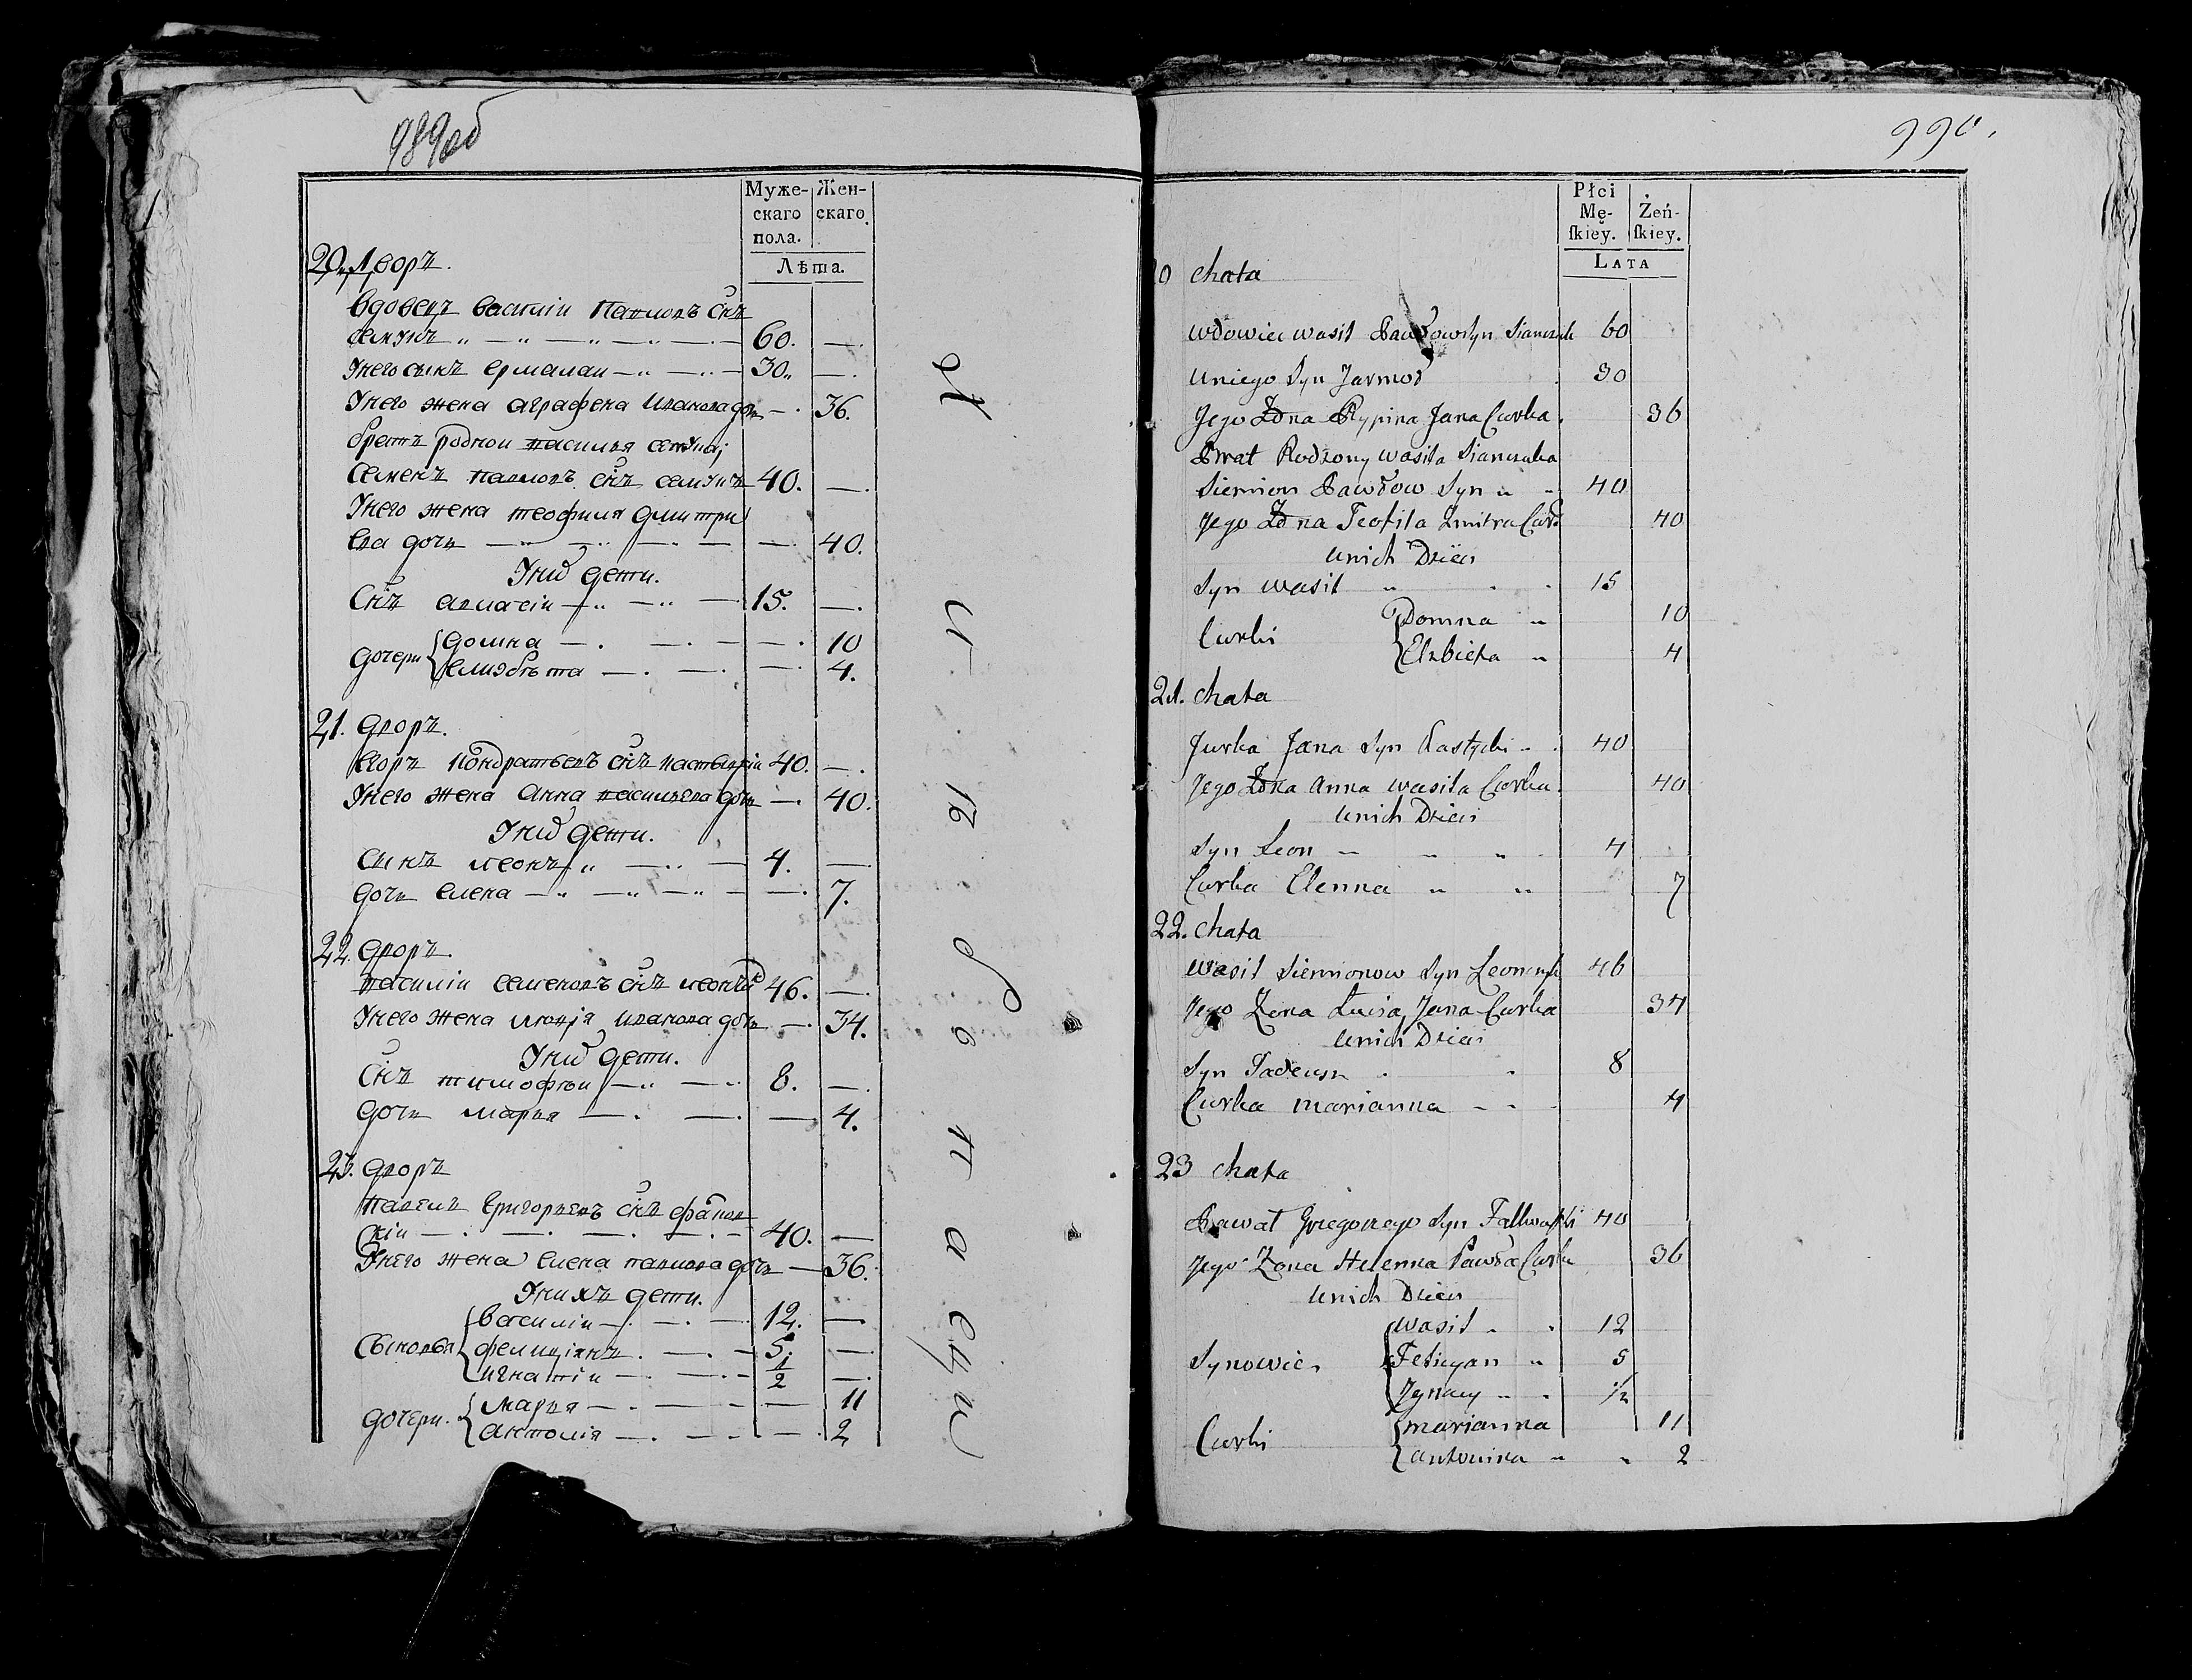 989об
Муже- Жен-
скаго скаго.
пола.
Лѣта.
20. Дворъ.
Вдовецъ василіи Павловъ Снъ
60. —
Унего сынъ ермалаи — 30. —
Унего жена аграфена Иванова дочь — 36.
братъ роднои василья
Семенъ павловъ снъ 40. —
Унего жена теофиля дмитри
ева дочь — 40.
Уних дети.
Снъ 15. —
дочери домна — 10
елизбѣта — 4.
21. дворъ.
Кондратьевъ снъ 40. —
Унего жена анна васильева дочь — 40.
Уних дети.
Сынъ леонъ — 4. —
дочь елена — 7.
22. дворъ.
василіи семеновъ снъ 46. —
Унего жена люція иванова дочь — 34.
Уних дети.
Снъ тимофѣи — 8. —
дочь марья — 4.
23. дворъ
павелъ григорьевъ снъ
40. —
Унего жена елена павлова дочь — 36.
Унихъ дети.
Сыновья василіи — 12. —
фелиціянъ — 5. —
игнатіи — 1/2 —
дочери. марья — 11
антолія — 2
990.
Płci
Mę- Żeń-
skiey. skiey.
LATA
0 chata
wdowiec wasil Pawłow Syn Sianczuk 60
uniego Syn Jarmoł 30
Jego Żona Rypina Jana Curka 36
Brat Rodzony wasila Sianczuka
Siemion Pawłow Syn 40
Jego Żona Teofila Zmitra Cur 40
unich Dzieci
Syn wasil 15
Curki Domna 10
Elzbieta 4
21. chata
Jurka Jana Syn 40
Jego Żona Anna wasila Curka 40
unich Dzieci
Syn Leon 4
Curka Elenna 7
22. chata
wasil Siemionow Syn Leonczyk 46
Jego Żona Lucia Jana Curka 34
unich Dzieci
Syn Tadeusz 8
Curka marianna 4
23 chata
Pawał Grzegorzego Syn 40
Jego Żona Helenna Pawła Curka 36
unich Dzieci
Synowie wasil 12
Felicyan 5
Jgnacy 1/2
Curki marianna 11
antonina 2